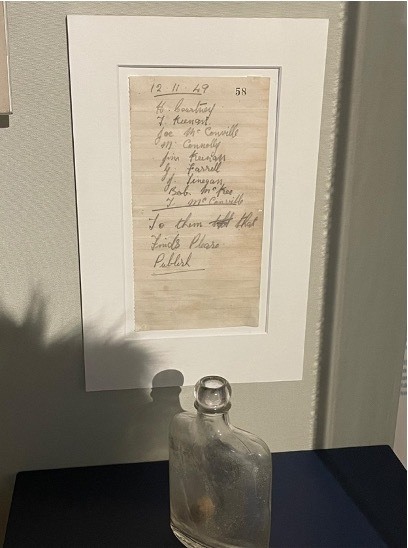 12 - 11 - 49
58
H. Courtney
T. Keenan
Joe McConville
M. Connolly
Jim Keenan
G. Farrell
J. Finegan
Bob. McKee
T. McConville
To them that
Finds Please
Publish